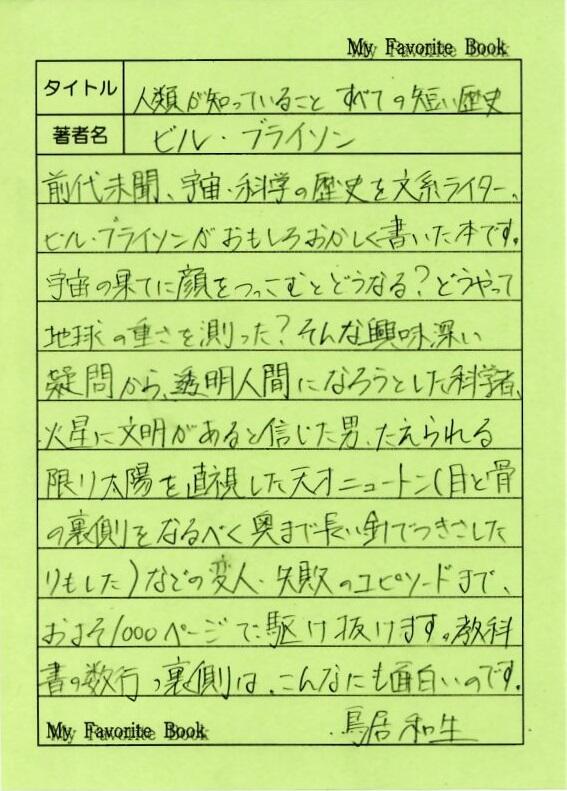 My Favorite Book
タイトル 人類が知っていること すべての短い歴史
著者名 ビル・ブライソン
前代未聞、宇宙・科学の歴史を文系ライター、
ビル・ブライソンがおもしろおかしく書いた本です。
宇宙の果てに顔をつっこむとどうなる？どうやって
地球の重さを測った？そんな興味深い
疑問から、透明人間になろうとした科学者、
火星に文明があると信じた男、たえられる
限り太陽を直視した天才ニュートン(目と骨
の裏側をなるべく奥まで長い針でつきさした
りもした)などの変人・失敗のエピソードまで、
およそ1000ページで駆け抜けます。教科
書の数行の裏側は、こんなにも面白いのです。
My Favorite Book 鳥居 和生